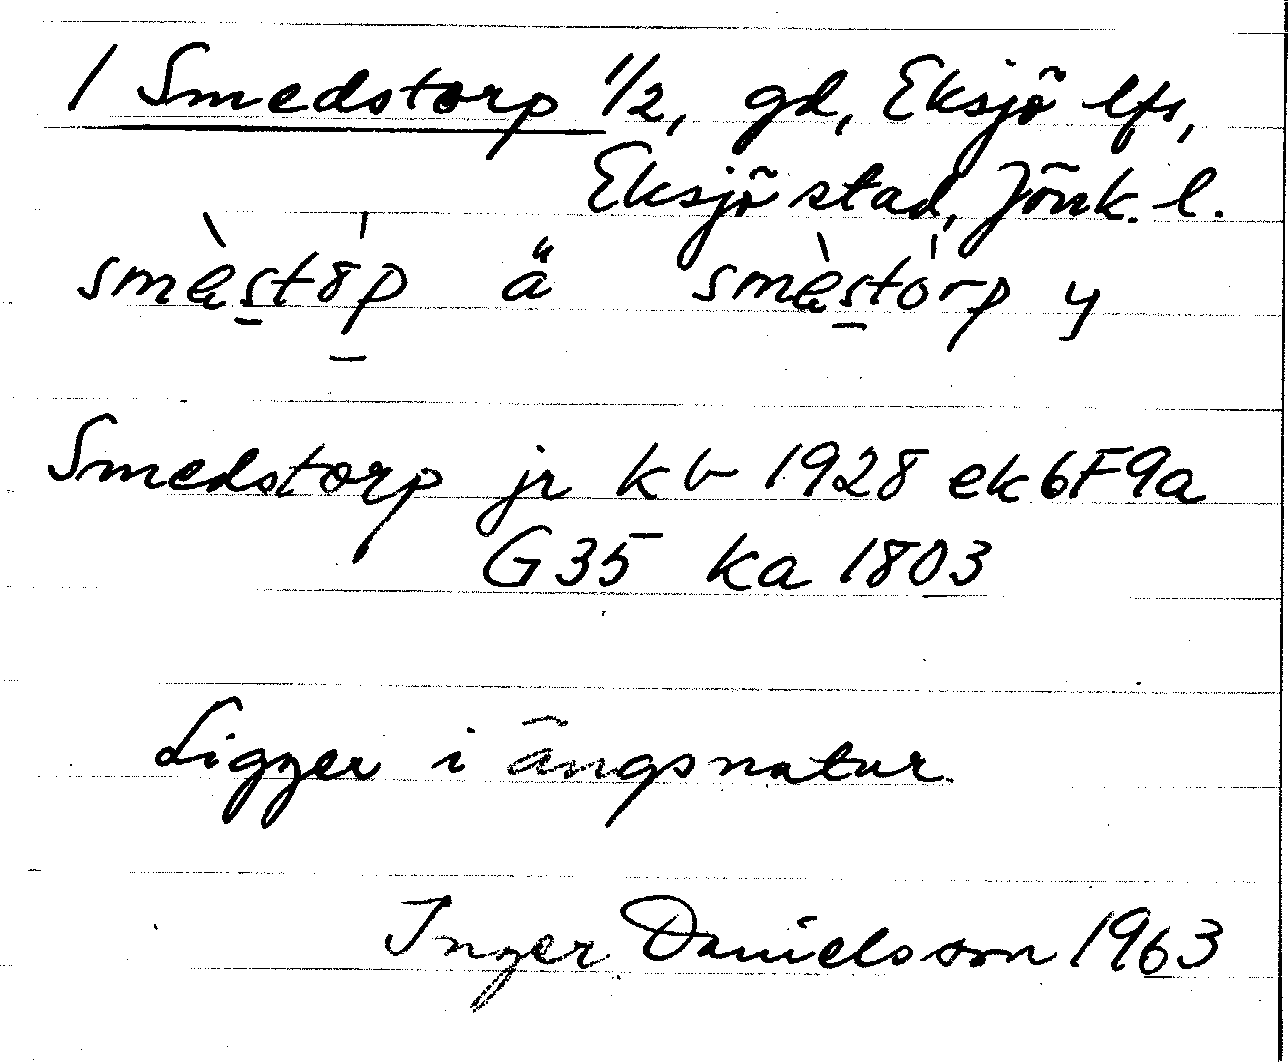 1 Smedstorp 1/2, gd, Eksjö lfs,
Eksjö stad, Jönk. l.
smèstöp ä smèstòrp y
Smedstorp jr kb 1928 ek 6F9a
G35 ka 1803
Ligger i ängsnatur
Inger Danielsson 1963